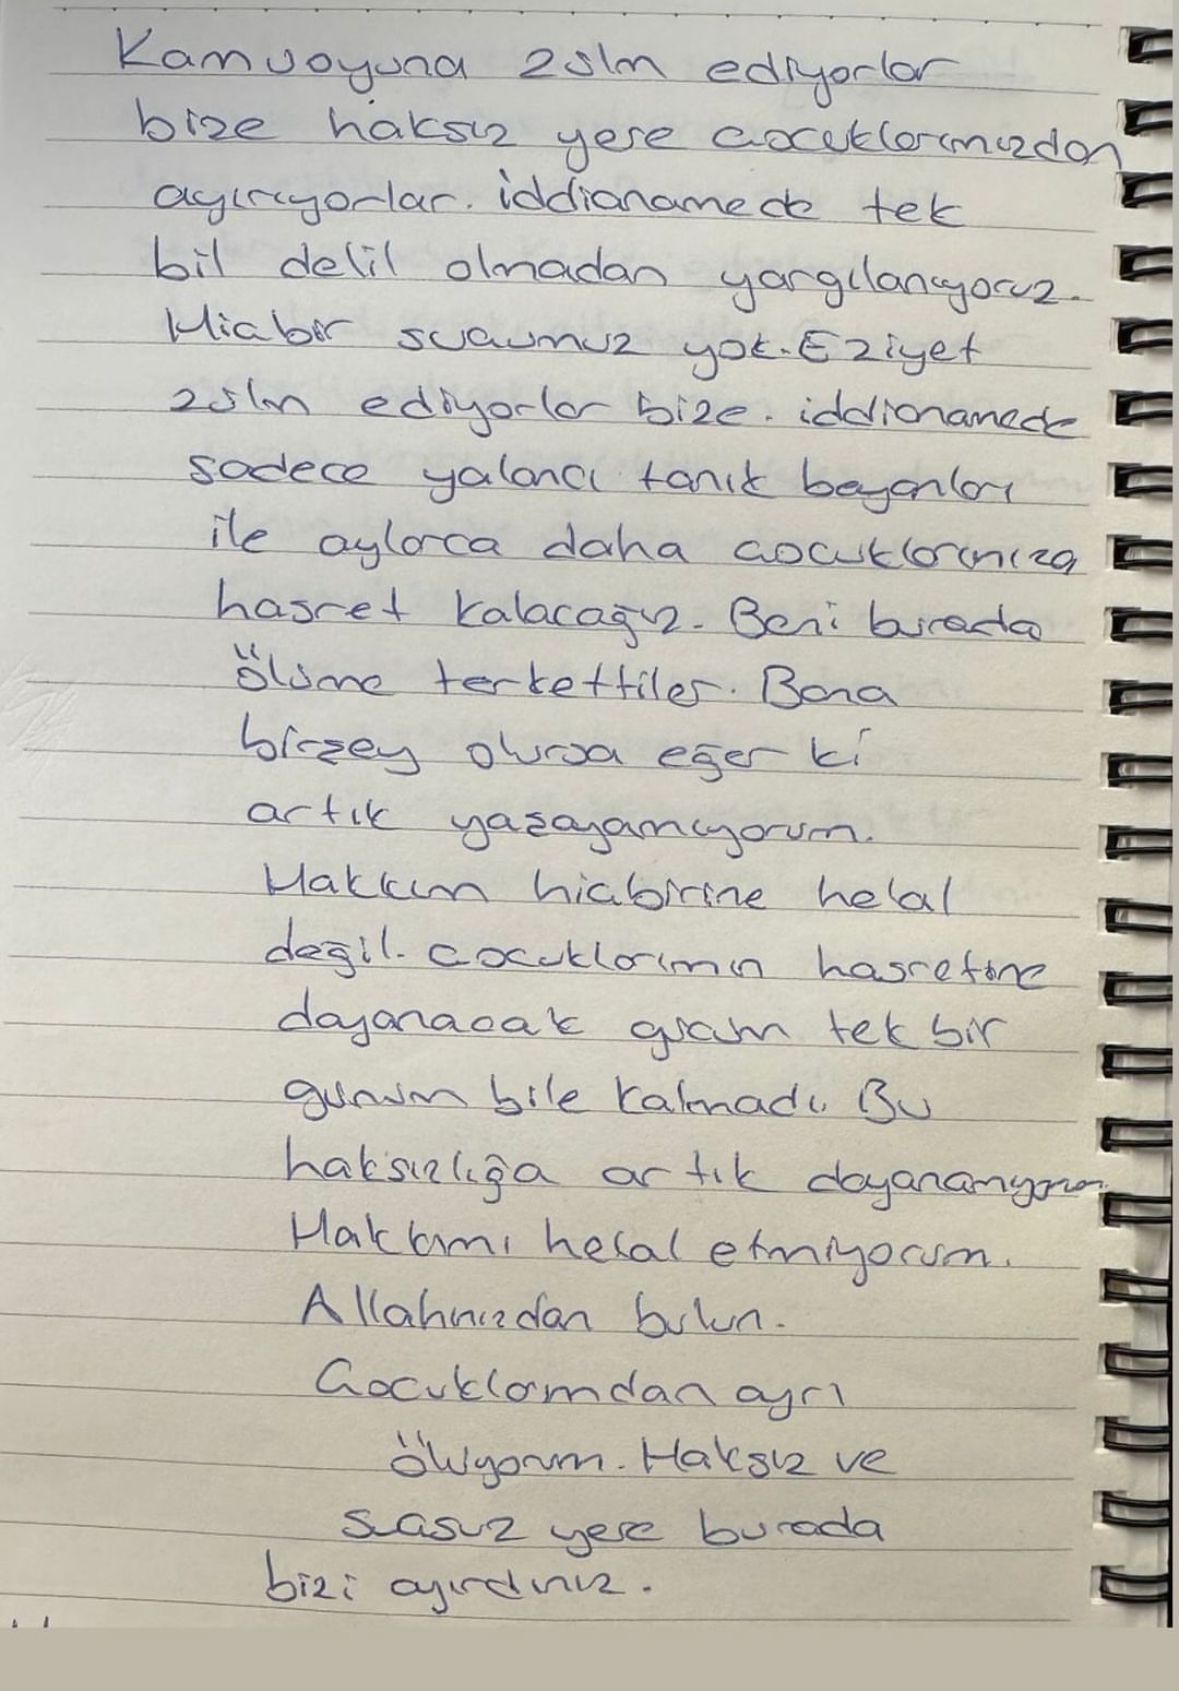 Kamuoyuna zulm ediyorlar
bize haksız yere çocuklarımızdan
ayırıyorlar. iddianamede tek
bil delil olmadan yargılanıyoruz.
Hiçbir suçumuz yok. Eziyet
zulm ediyorlar bize. iddianamede
sadece yalancı tanık beyanları
ile aylarca daha çocuklarımıza
hasret kalacağız. Beni burada
ölüme terkettiler. Bana
birşey olursa eğer ki
artık yaşayamıyorum.
Hakkım hiçbirine helal
değil. çocuklarımın hasretine
dayanacak gücüm tek bir
günüm bile kalmadı. Bu
haksızlığa artık dayanamıyorum.
Hakkımı helal etmiyorum.
Allahınızdan bulun.
Çocuklarımdan ayrı
ölüyorum. Haksız ve
suçsuz yere burada
bizi ayırdınız.